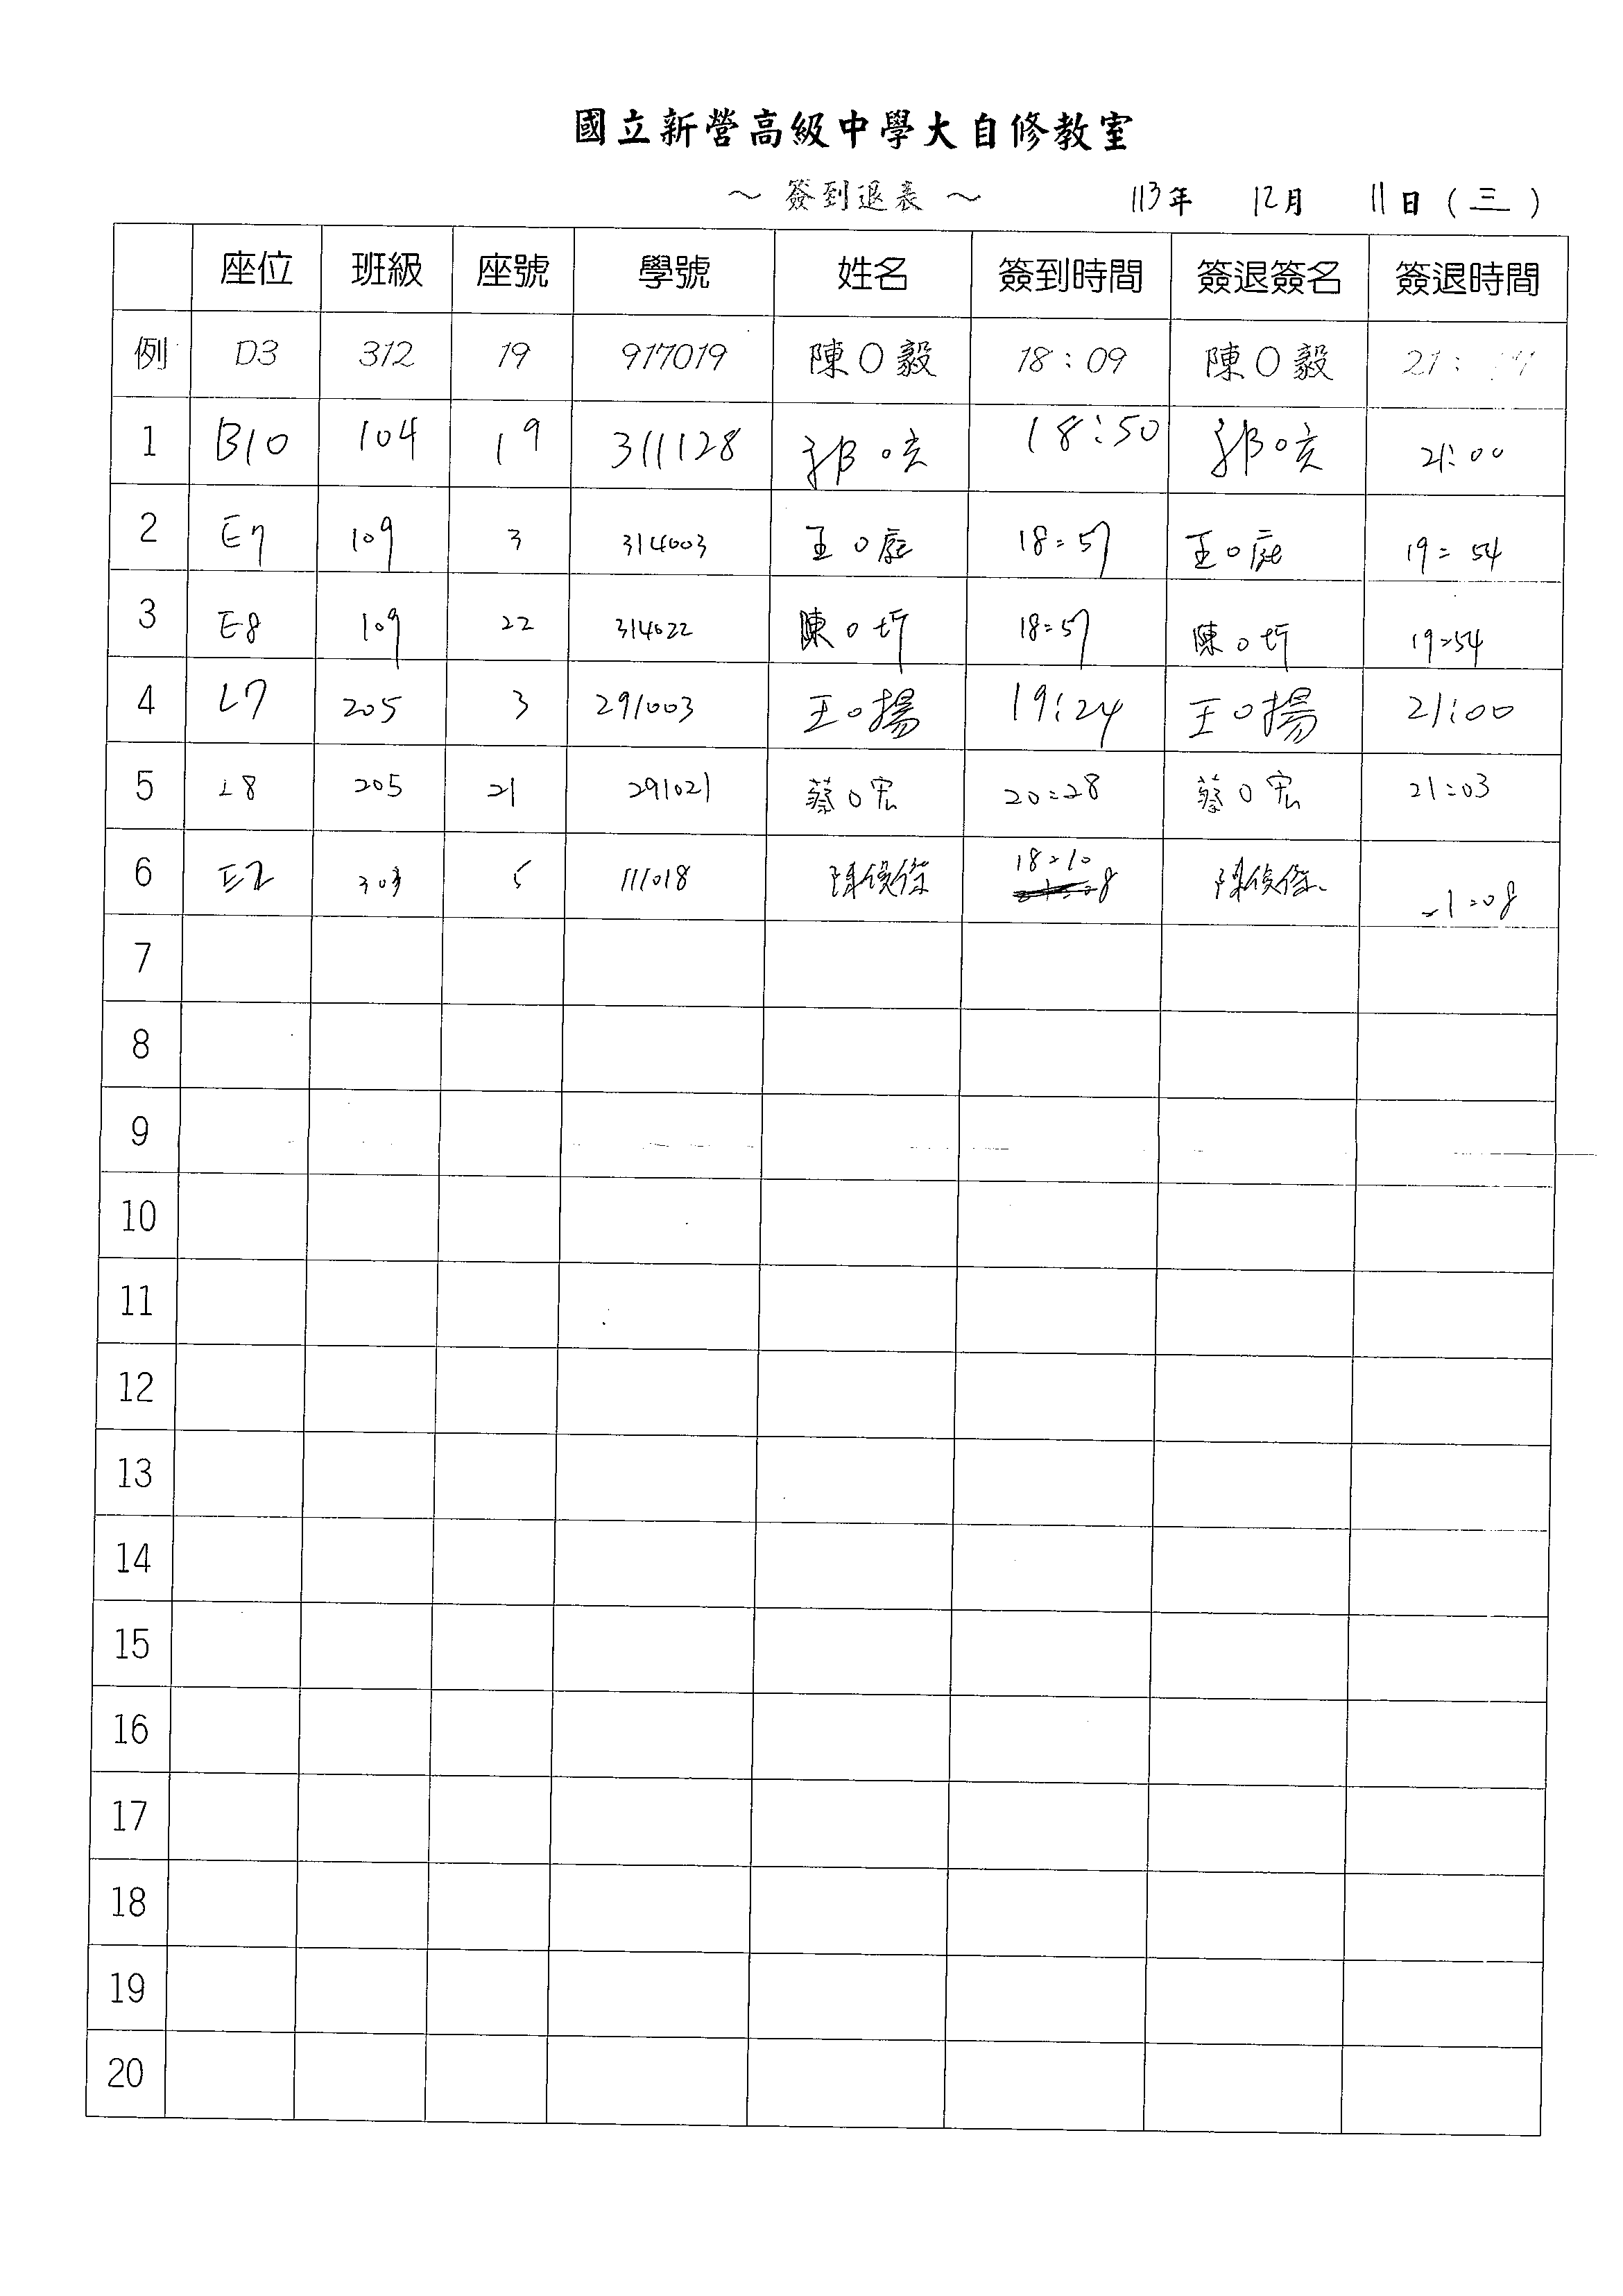 國立新營高級中學大自修教室
～ 簽到退表 ～ 113年 12月 11日 (三)
座位 班級 座號 學號 姓名 簽到時間 簽退簽名 簽退時間
例 D3 312 19 917019 陳O毅 18:09 陳O毅 21:
1 B10 104 19 311128 郭O亥 18:50 郭O亥 21:00
2 E7 109 3 314003 王O庭 18:57 王O庭 19:54
3 E8 109 22 314022 陳O圻 18:57 陳O圻 19:54
4 L7 205 3 291003 王O揚 19:24 王O揚 21:00
5 L8 205 21 291021 蔡O宏 20:28 蔡O宏 21:03
6 E2 5 111018 18:10 21:08
7
8
9
10
11
12
13
14
15
16
17
18
19
20